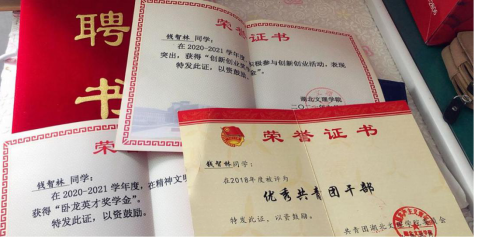 聘
书
荣誉证书
钱智林 同学：
在2020-2021学年度
积极参与创新创业活动，表现
突出，获得“创新创业奖学金”
特发此证，以资鼓励。
湖北文理学院
荣
钱智林 同学：
在2020-2021学年度，在精神文明
获得“卧龙英才奖学金”。
特发此证，以资鼓励。
荣誉证书
钱智林同学：
在2018年度被评为
优秀共青团干部
特发此证，以资鼓励。